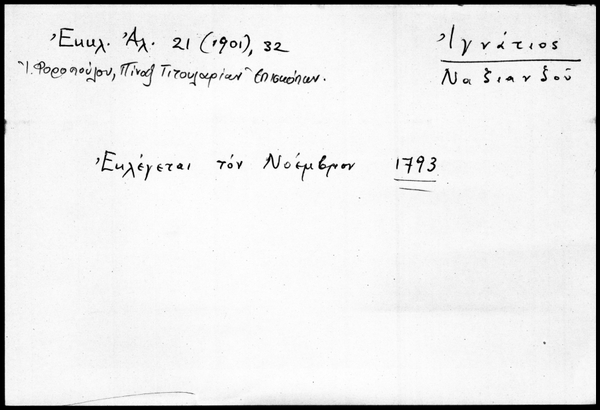 Ἐκκλ. Ἀλ. 21 (1901), 32
"Ι. Φοροπούλου, Πίναξ Τιτουλαρίων" Ἐπισκόπων.
Ἰγνάτιος
Ναζιανζοῦ
Ἐκλέγεται τόν Νοέμβριον 1793